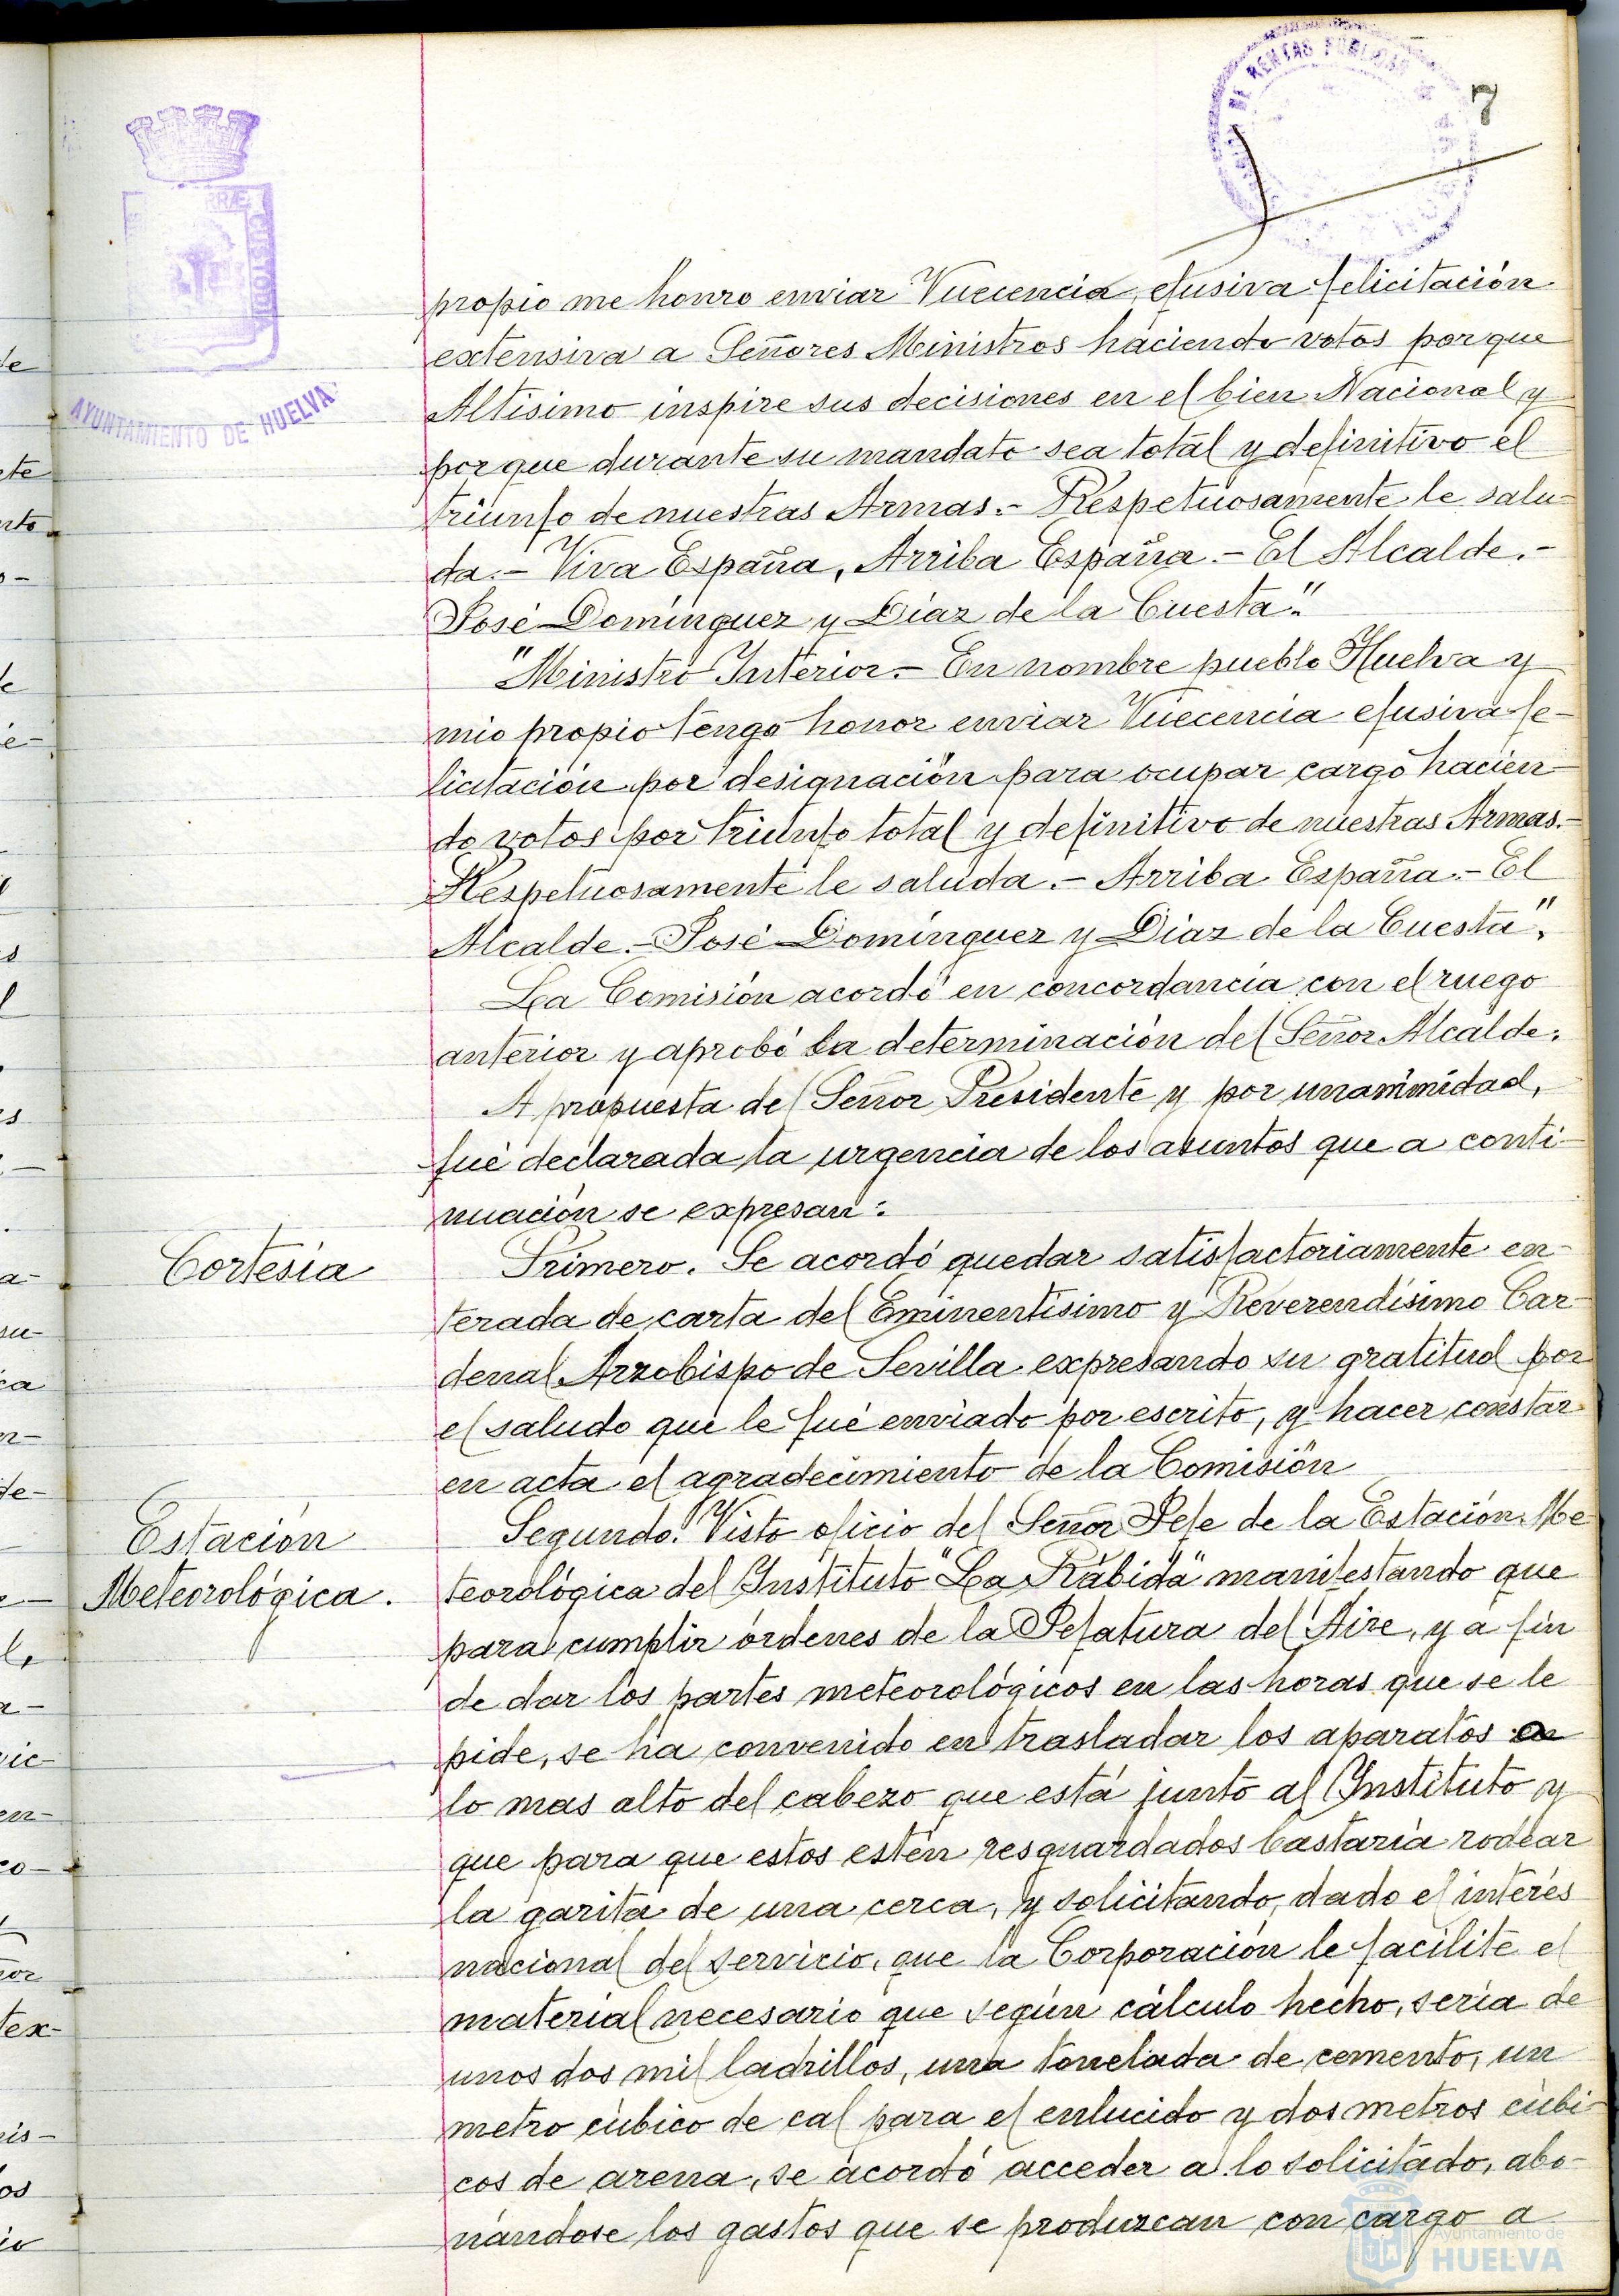 DE RENTAS PUBLICAS
7
RRÆ
CUSTODIA
AYUNTAMIENTO DE HUELVA
propio me honro enviar Vuecencia, efusiva felicitación
extensiva a Señores Ministros haciendo votos porque
Altísimo inspire sus decisiones en el bien Nacional y
porque durante su mandato sea total y definitivo el
triunfo de nuestras Armas.- Respetuosamente le salu-
da.- Viva España, Arriba España.- El Alcalde.-
José Domínguez y Díaz de la Cuesta."
"Ministro Interior.- En nombre pueblo Huelva y
mio propio tengo honor enviar Vuecencia efusiva fe-
licitación por designación para ocupar cargo hacien-
do votos por triunfo total y definitivo de nuestras Armas.-
Respetuosamente le saluda.- Arriba España.- El
Alcalde.- José Domínguez y Díaz de la Cuesta".
La Comisión acordó en concordancia con el ruego
anterior y aprobó la determinación del Señor Alcalde.
A propuesta del Señor Presidente y por unanimidad,
fué declarada la urgencia de los asuntos que a conti-
nuación se expresan:
Cortesía
Primero. Se acordó quedar satisfactoriamente en-
terada de carta del Eminentísimo y Reverendísimo Car-
denal Arzobispo de Sevilla expresando su gratitud por
el saludo que le fué enviado por escrito, y hacer constar
en acta el agradecimiento de la Comisión
Estación
Meteorológica.
Segundo. Visto oficio del Señor Jefe de la Estación Me
teorológica del Instituto "La Rábida" manifestando que
para cumplir órdenes de la Jefatura del Aire, y a fin
de dar los partes meteorológicos en las horas que se le
pide, se ha convenido en trasladar los aparatos en
lo mas alto del cabezo que está junto al Instituto y
que para que estos estén resguardados bastaría rodear
la garita de una cerca, y solicitando, dado el interés
nacional del servicio, que la Corporación le facilite el
material necesario que según cálculo hecho, sería de
unos dos mil ladrillos, una tonelada de cemento, un
metro cúbico de cal para el enlucido y dos metros cúbi-
cos de arena, se acordó acceder a lo solicitado, abo-
nándose los gastos que se produzcan con cargo a
Ayuntamiento de
HUELVA